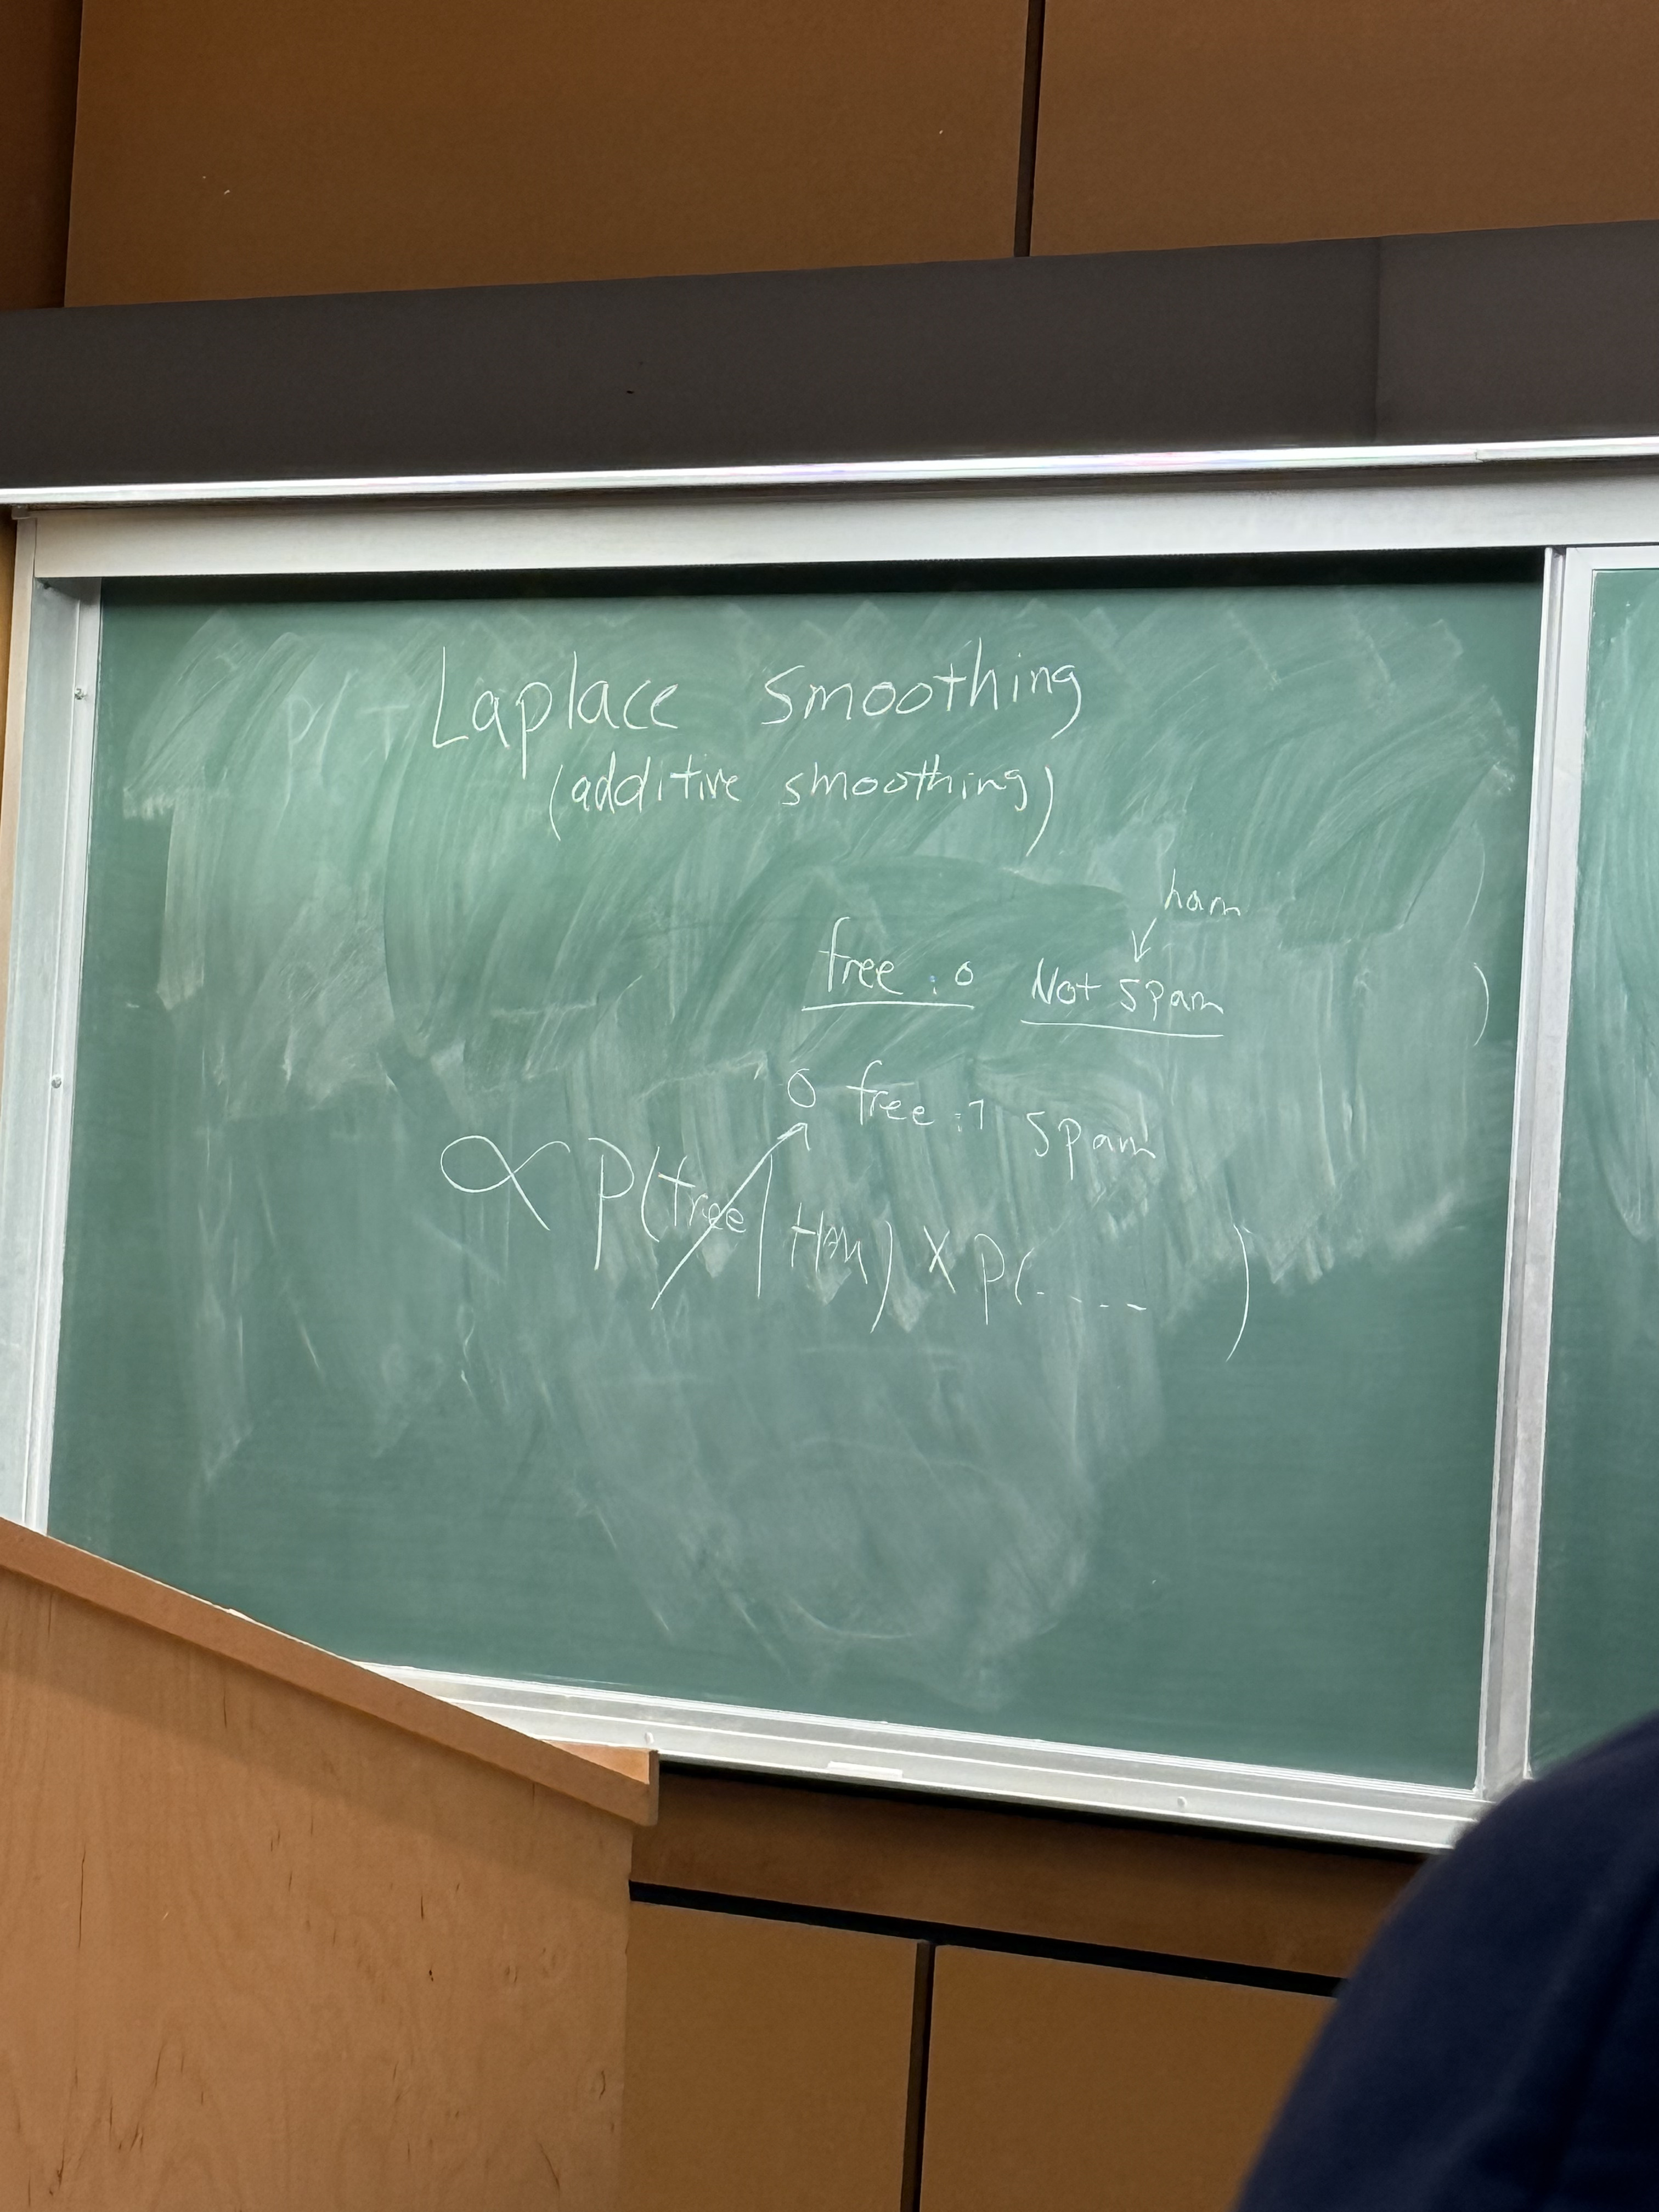 Laplace Smoothing
(additive smoothing)
ham
↓
free : 0 Not Spam
0 free : 7 Spam
∝ P(free | Ham) × P(. - - - )